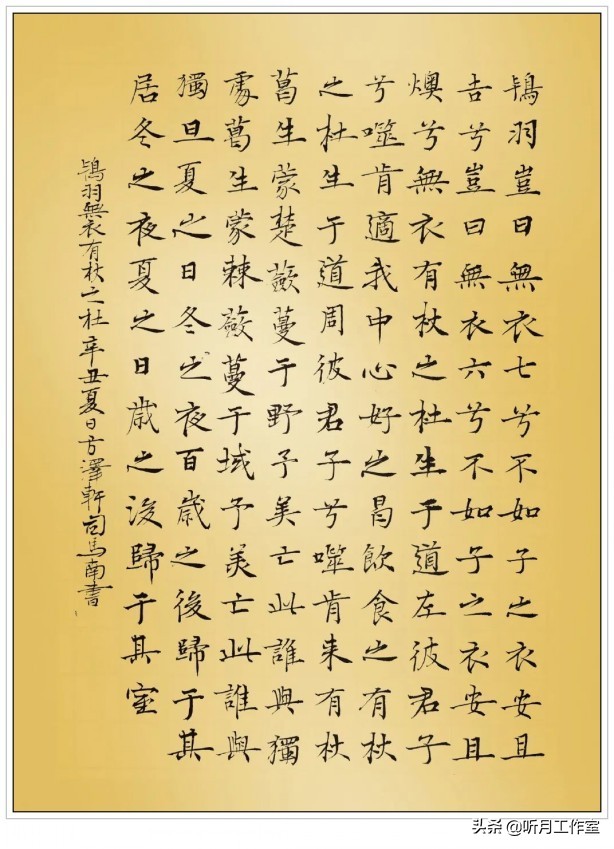 鴇羽豈曰無衣七兮不如子之衣安且
吉兮豈曰無衣六兮不如子之衣安且
燠兮無衣有杕之杜生于道左彼君子
兮噬肯適我中心好之曷飲食之有杕
之杜生于道周彼君子兮噬肯来有杕
葛生蒙楚蘞蔓于野予美亡此誰與獨
處葛生蒙棘蘞蔓于域予美亡此誰與
獨旦夏之日冬之夜百歲之後歸于其
居冬之夜夏之日歲之後歸于其室
鴇羽無衣有杕之杜辛丑夏日方澤軒司馬南書
头条 @听月工作室